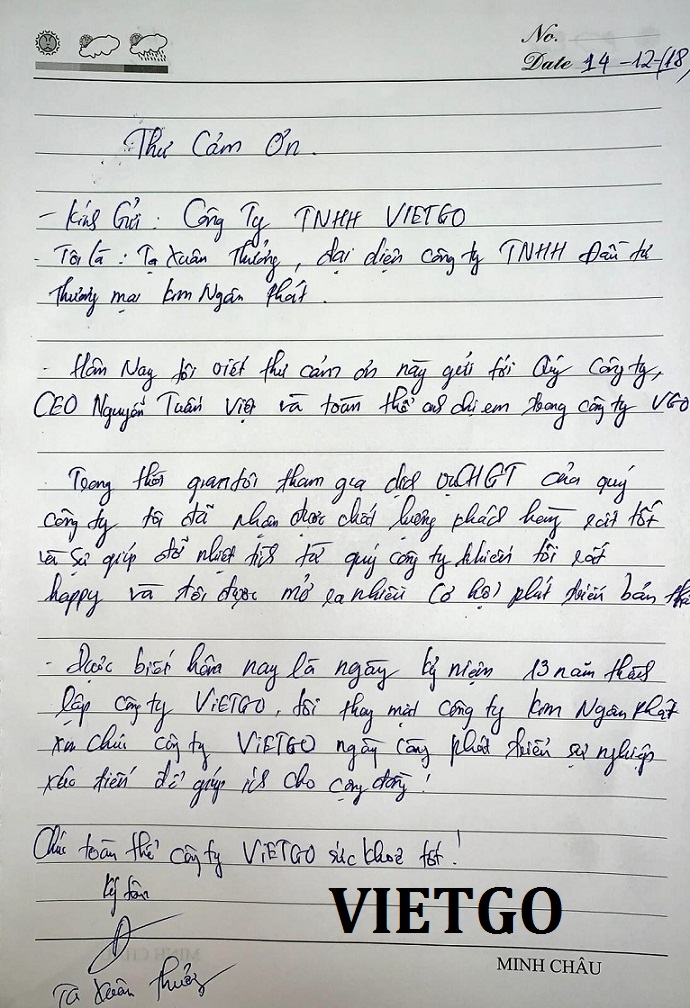 No.
Date 14-12-(18)
Thư Cảm Ơn.
- Kính Gửi: Công Ty TNHH VIETGO
- Tôi là: Tạ Xuân Thưởng, đại diện công ty TNHH Đầu tư
Thương mại Kim Ngân Phát.
- Hôm Nay tôi viết thư cảm ơn này gửi tới Quý công ty,
CEO Nguyễn Tuấn Việt và toàn thể anh chị em trong công ty VGO
Trong thời gian tôi tham gia dịch vụ CHGT của quý
công ty tôi đã nhận được chất lượng khách hàng rất tốt
và sự giúp đỡ nhiệt tình từ quý công ty khiến tôi rất
happy và tôi được mở ra nhiều cơ hội phát triển bản
- Được biết hôm nay là ngày kỷ niệm 13 năm thành
lập công ty VIETGO, tôi thay mặt công ty Kim Ngân Phát
xin chúc công ty VIETGO ngày càng phát triển sự nghiệp
xúc tiến để giúp ích cho cộng đồng!
Chúc toàn thể công ty VIETGO sức khoẻ tốt!
Ký tên
Tạ Xuân Thưởng
VIETGO
MINH CHÂU